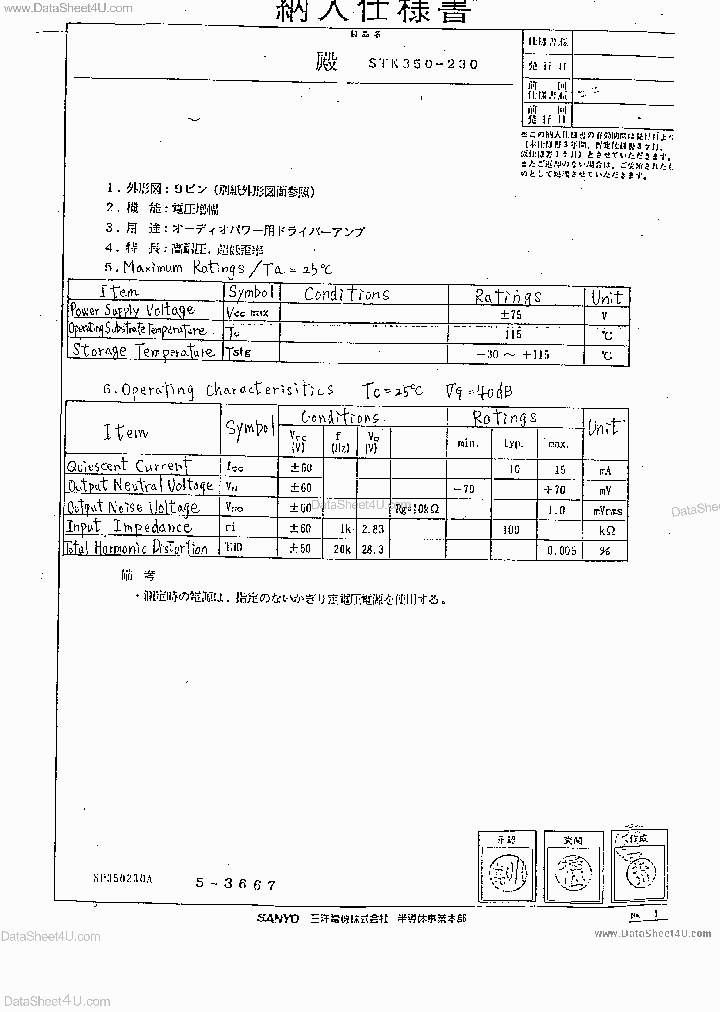 www.DataSheet4U.com
納入仕様書
製品名
殿 STK350-230
仕様書版
発行日
前回
仕様書版
前回
発行日
※この納入仕様書の有効期間は発行日より
1. 外形図：9ピン（別紙外形図面参照）
2. 機 能：電圧増幅
3. 用 途：オーディオパワー用ドライバーアンプ
4. 特 長：高耐圧、超低歪率
5. Maximum Ratings /Ta=25℃
Item Symbol Conditions Ratings Unit
Power Supply Voltage Vcc max ±75 V
Operating Substrate Temperature Tc 115 ℃
Storage Temperature Tstg -30 ～ +115 ℃
6. Operating Characterisitics Tc=25℃ Vg=40dB
Item Symbol Conditions Ratings Unit
Vcc (V) f (Hz) Vo (V) min. typ. max.
Quiescent Current Icc ±60 10 15 mA
Output Neutral Voltage VN ±60 -70 +70 mV
Output Noise Voltage VNO ±60 Rg=10kΩ 1.0 mVrms
Input Impedance ri ±60 1k 2.83 100 kΩ
Total Harmonic Distortion THD ±60 20k 28.3 0.005 %
DataSheet4U.com
備 考
・測定時の電源は、指定のないかぎり定電圧電源を使用する。
承認 査閲 作成
SP350230A 5-3667
SANYO 三洋電機株式会社 半導体事業本部
No. 1
DataSheet4U.com
www.DataSheet4U.com
DataSheet4U.com